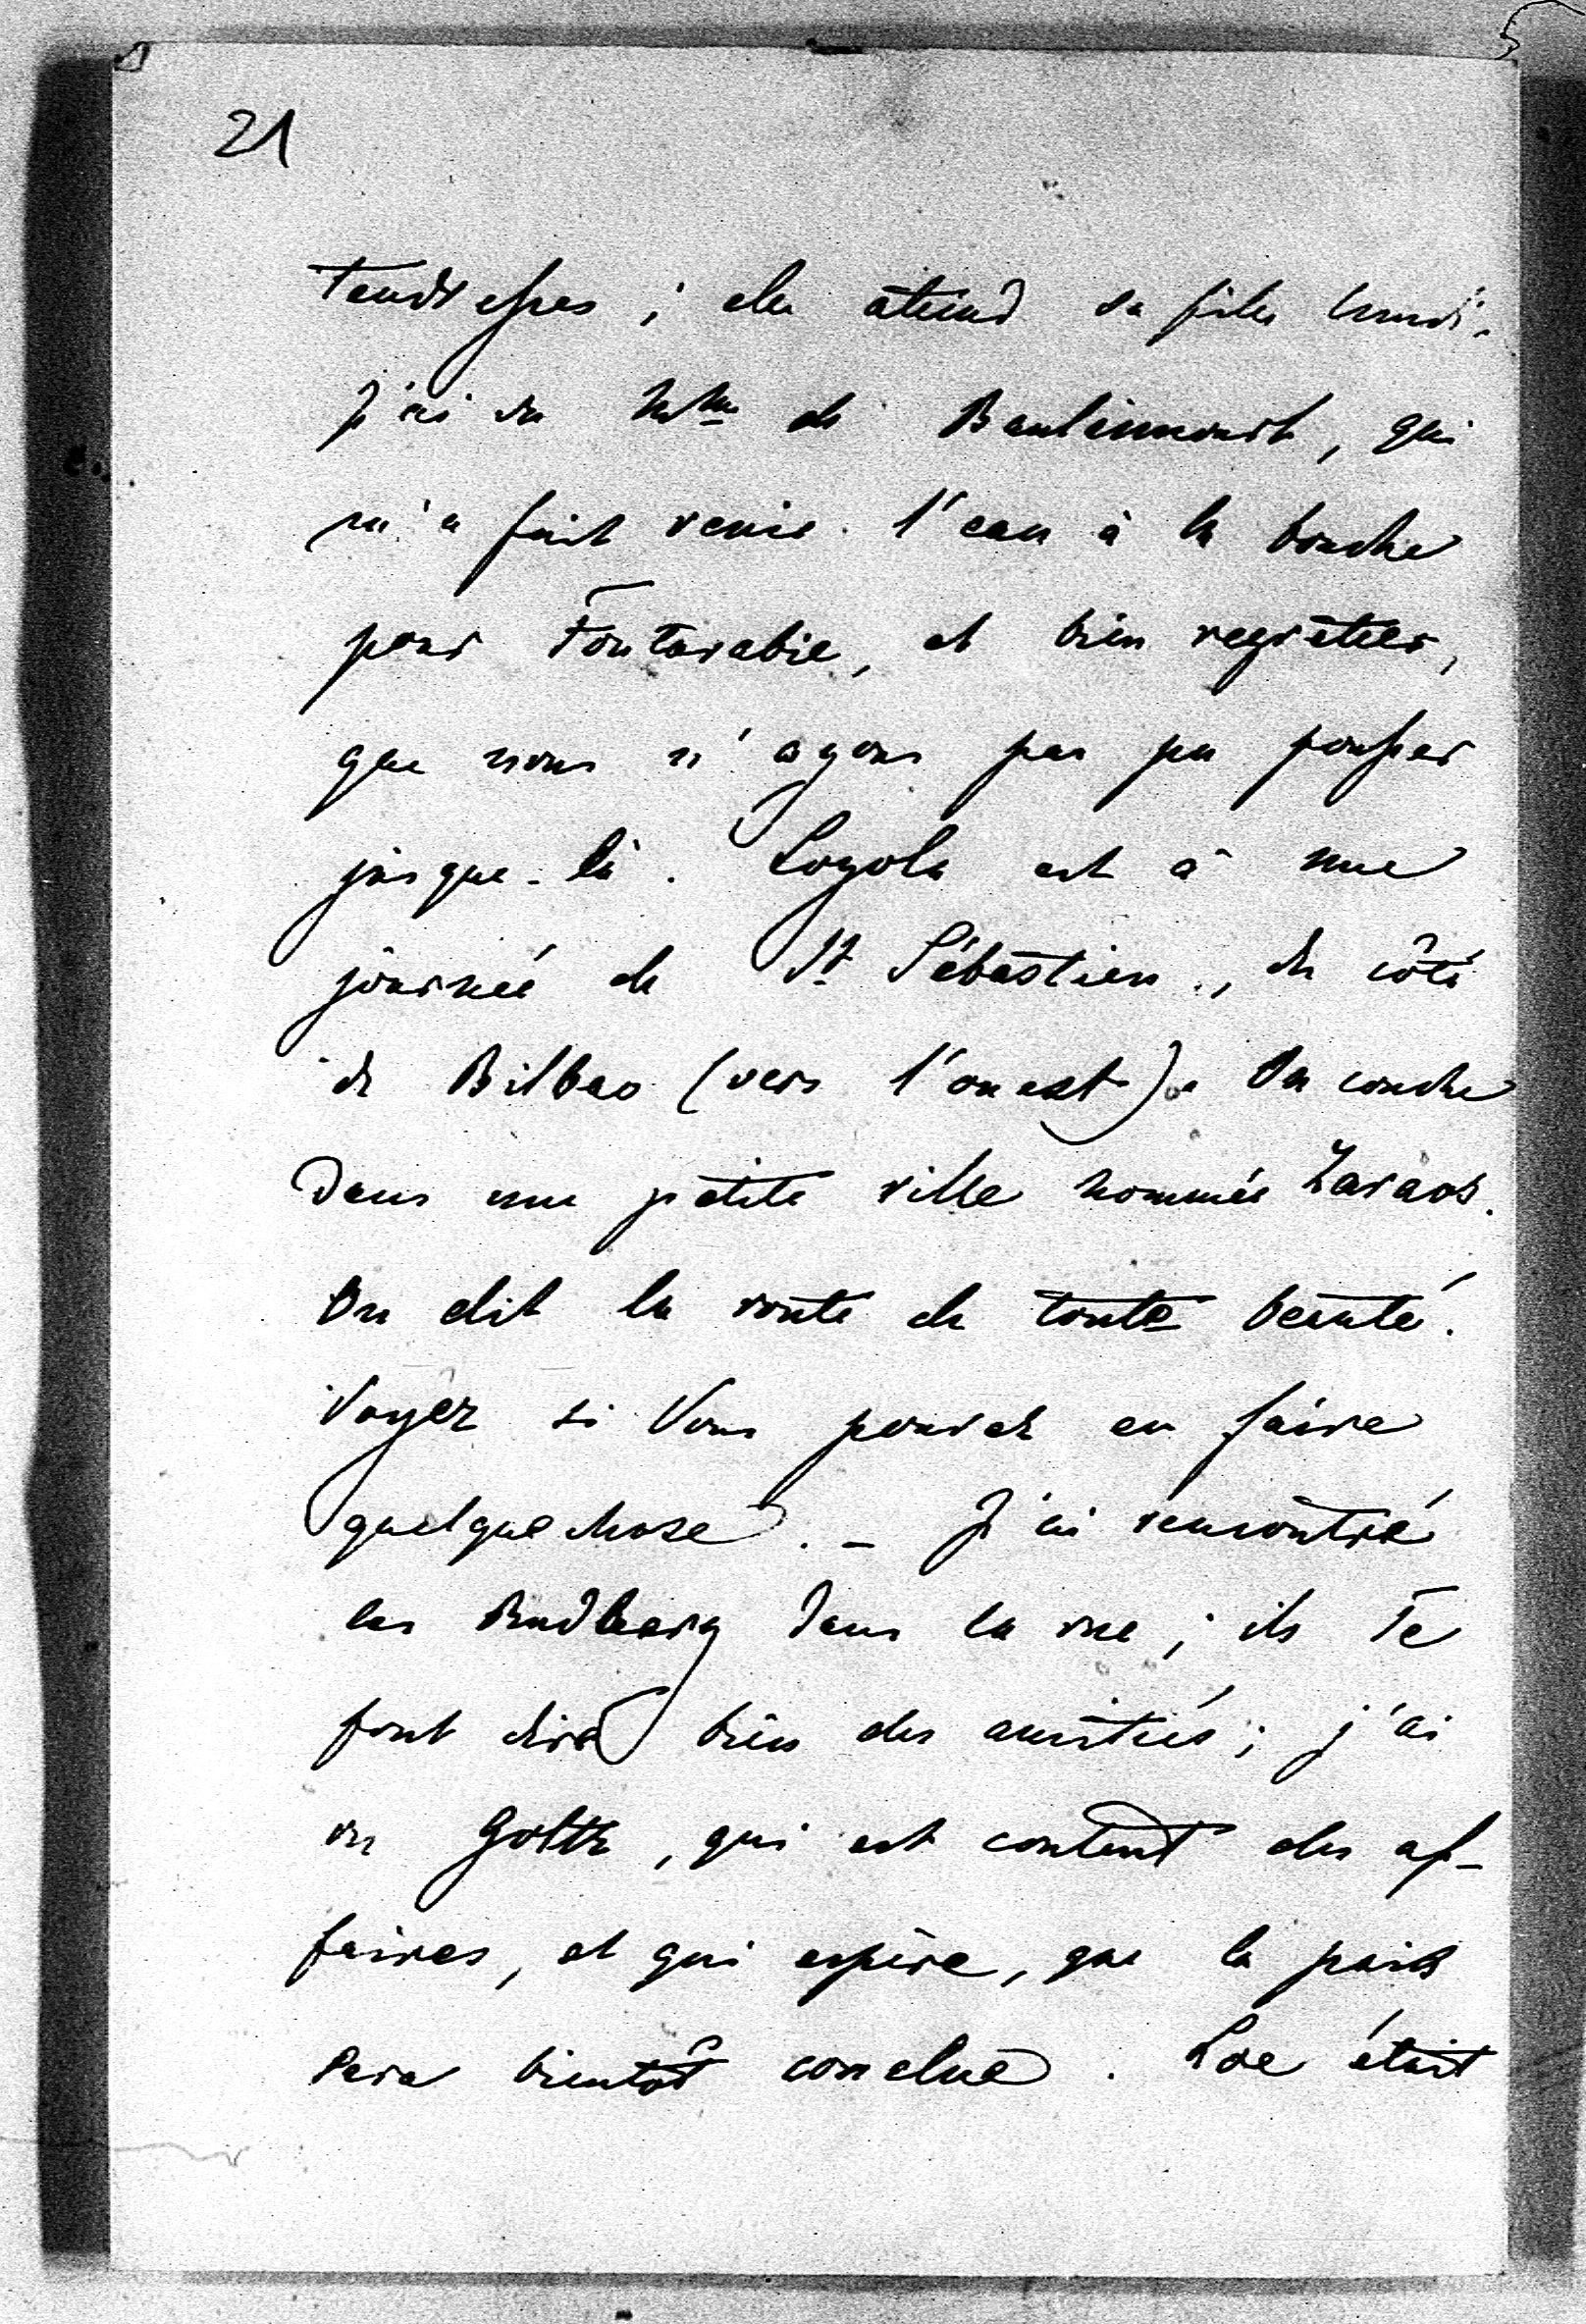 21
tendresses ; elle attend sa fille lundi.
J'ai vu Mme de Baulincourt, qui
m'a fait venir l'eau à la bouche
pour Fontarabie, et bien regretter,
que nous n'ayons pas pu pousser
jusque-là. Loyola est à une
journée de St Sébastien, du côté
de Bilbao (vers l'ouest). On couche
dans une petite ville nommée Zaraos.
On dit la route de toute beauté.
Voyez si Vous pouvez en faire
quelquechose. - J'ai rencontré
les Budberg dans la rue ; ils te
font dire bien des amitiés ; j'ai
vu Goltz, qui est content des af-
faires, et qui espère, que la paix
sera bientôt conclue. Loe était